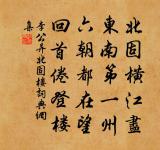 北固橫江盡
東南第一州
六朝都在望
回首倦登樓
李公昇北固樓詞典網
集